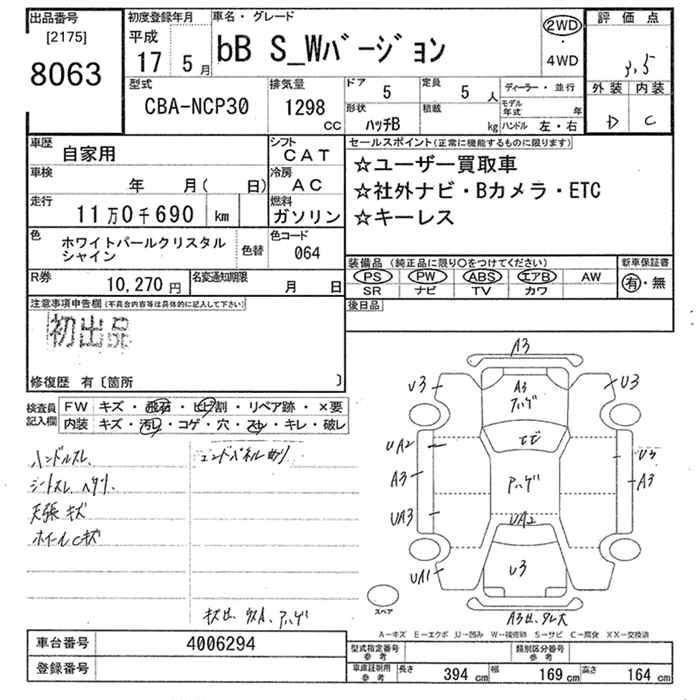 出品番号
[2175]
8063
初度登録年月
平成
17 5月
車名・グレード
bB S_Wバージョン
2WD
・
4WD
評価点
3.5
外装 内装
D C
型式
CBA-NCP30
排気量
1298
CC
ドア
5
定員
5 人
形状
ハッチB
積載
kg
ディーラー・並行
モデル年式 年
ハンドル 左・右
車歴
自家用
シフト
CAT
車検
年 月( 日)
冷房
AC
走行
11万0千690 km
燃料
ガソリン
色
ホワイトパールクリスタル
シャイン
色替
色コード
064
R券
10,270円
名変通知期限
月 日
セールスポイント(正常に機能するものに限ります)
☆ユーザー買取車
☆社外ナビ・Bカメラ・ETC
☆キーレス
装備品 (純正品に限り○をつけてください)
PS PW ABS エアB AW
SR ナビ TV カワ
新車保証書
有・無
後日品
注意事項申告欄(不具合内容等は具体的に記入して下さい)
初出品
修復歴 有〔箇所 〕
検査員
記入欄
FW キズ・飛石・ヒビ割・リペア跡・×要
内装 キズ・汚レ・コゲ・穴・スレ・キレ・破レ
ハンドルスレ
シートスレ ヘタリ
天張キズ
ホイールCキズ
A3
U3
A3
アハゲ
U3
UA2
トビ
U3
A3
アハゲ
A3
UA3
UA2
UA1
U3
スペア
A3
A-キズ E-エクボ U-凹み W-補修跡 S-サビ C-腐食 XX-交換済
車台番号
4006294
登録番号
型式指定番号
参考
類別区分番号
参考
車庫証明用
参考
長さ 394 cm 幅 169 cm 高さ 164 cm